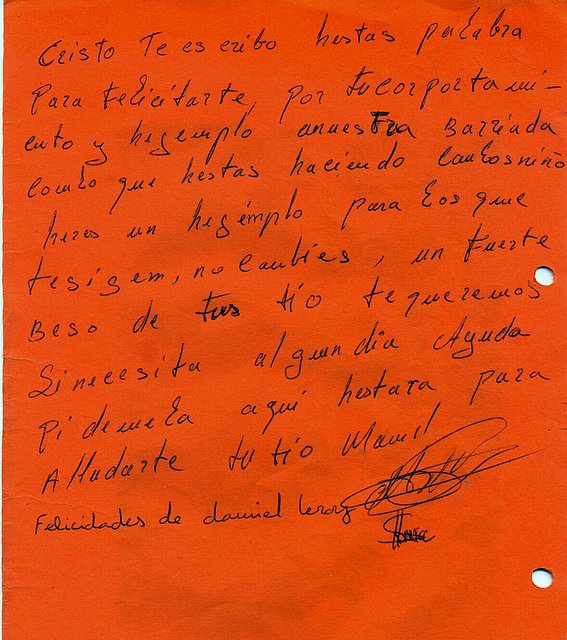 Cristo Te escribo hestas palabra
Para felicitarte, por tu corportami-
ento y hegemplo anuestra Barriada
Lo que hestas haciendo con los niño
heres un hegémplo para los que
tesigem, no canbies, un fuerte
Beso de tus tio te queremos
Si necesita algun dia Ayuda
Pidemela aqui hestara para
Alludarte tu tio Manuel
Felicidades de daniel